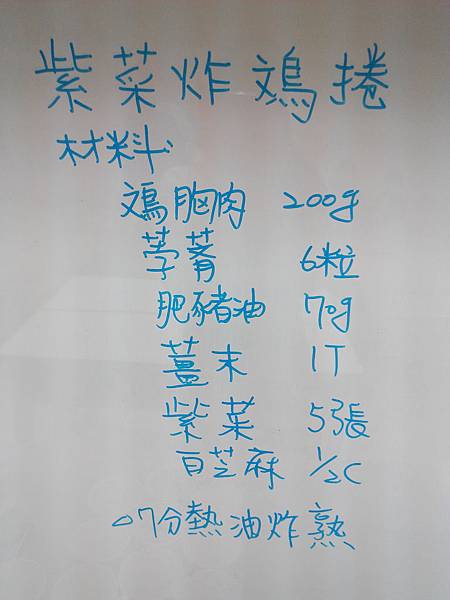 紫菜炸鷄捲
材料
鷄胸肉 200g
荸薺 6粒
肥豬油 70g
薑末 1T
紫菜 5張
白芝麻 1/2C
○7分熱油炸熟